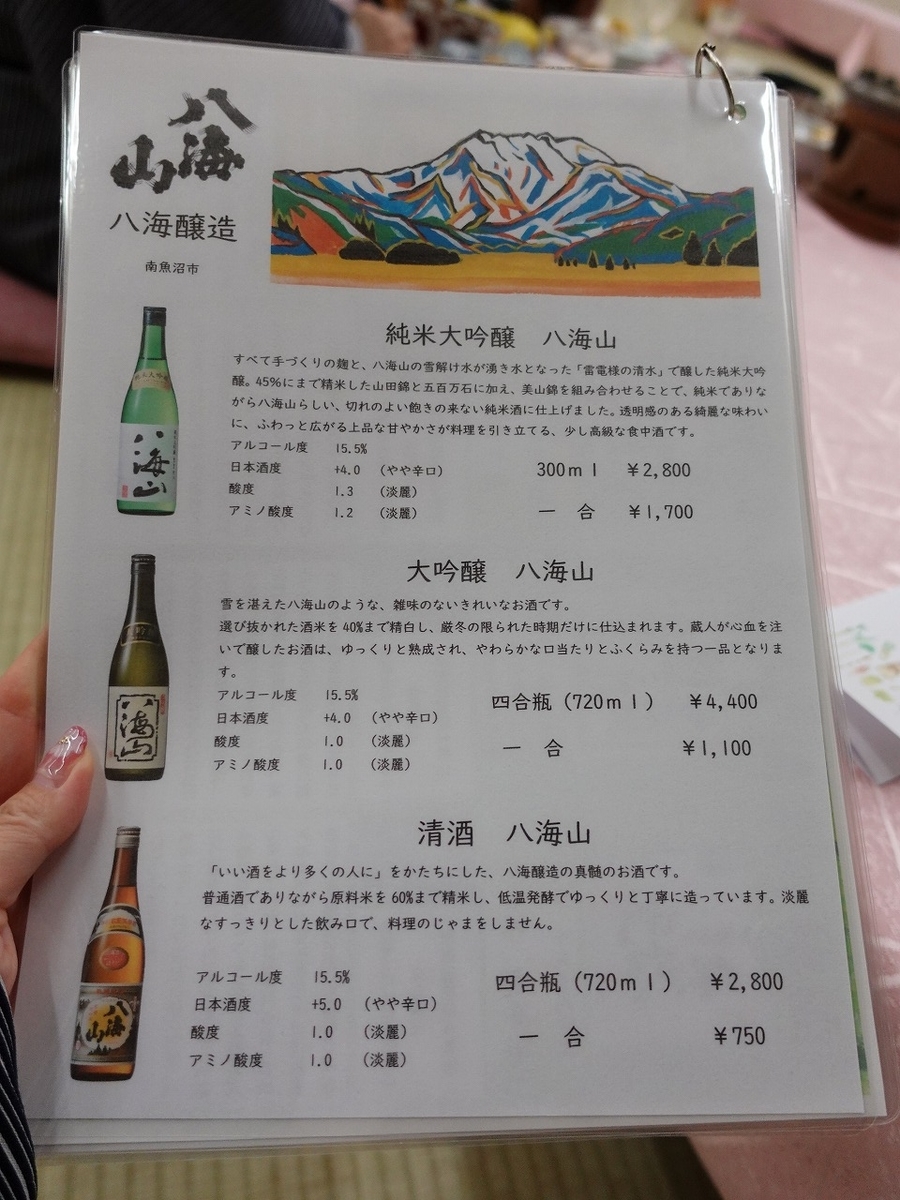 八海山
八海醸造
南魚沼市
純米大吟醸 八海山
すべて手づくりの麹と、八海山の雪解け水が湧き水となった「雷電様の清水」で醸した純米大吟
醸。45%にまで精米した山田錦と五百万石に加え、美山錦を組み合わせることで、純米でありな
がら八海山らしい、切れのよい飽きの来ない純米酒に仕上げました。透明感のある綺麗な味わい
に、ふわっと広がる上品な甘やかさが料理を引き立てる、少し高級な食中酒です。
アルコール度 15.5%
日本酒度 +4.0 (やや辛口)
酸度 1.3 (淡麗)
アミノ酸度 1.2 (淡麗)
300ml ¥2,800
一合 ¥1,700
八海山
大吟醸 八海山
雪を湛えた八海山のような、雑味のないきれいなお酒です。
選び抜かれた酒米を40%まで精白し、厳冬の限られた時期だけに仕込まれます。蔵人が心血を注
いで醸したお酒は、ゆっくりと熟成され、やわらかな口当たりとふくらみを持つ一品となりま
す。
アルコール度 15.5%
日本酒度 +4.0 (やや辛口)
酸度 1.0 (淡麗)
アミノ酸度 1.0 (淡麗)
四合瓶(720ml) ¥4,400
一合 ¥1,100
八海山
清酒 八海山
「いい酒をより多くの人に」をかたちにした、八海醸造の真髄のお酒です。
普通酒でありながら原料米を60%まで精米し、低温発酵でゆっくりと丁寧に造っています。淡麗
なすっきりとした飲み口で、料理のじゃまをしません。
アルコール度 15.5%
日本酒度 +5.0 (やや辛口)
酸度 1.0 (淡麗)
アミノ酸度 1.0 (淡麗)
四合瓶(720ml) ¥2,800
一合 ¥750
八海山